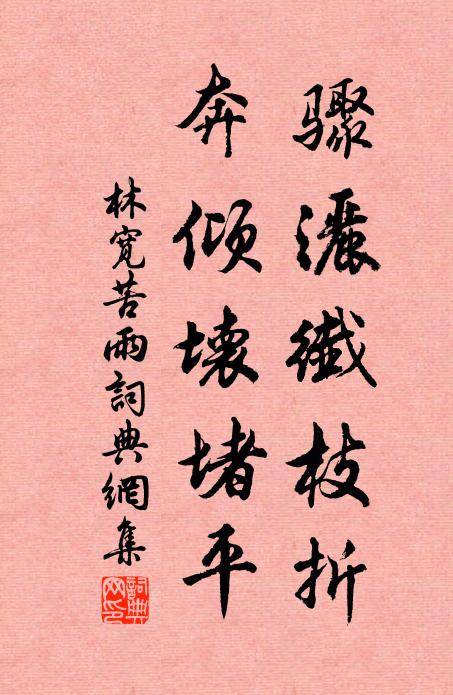 驟灑纖枝折
奔傾壞堵平
林寬苦雨詞典網集